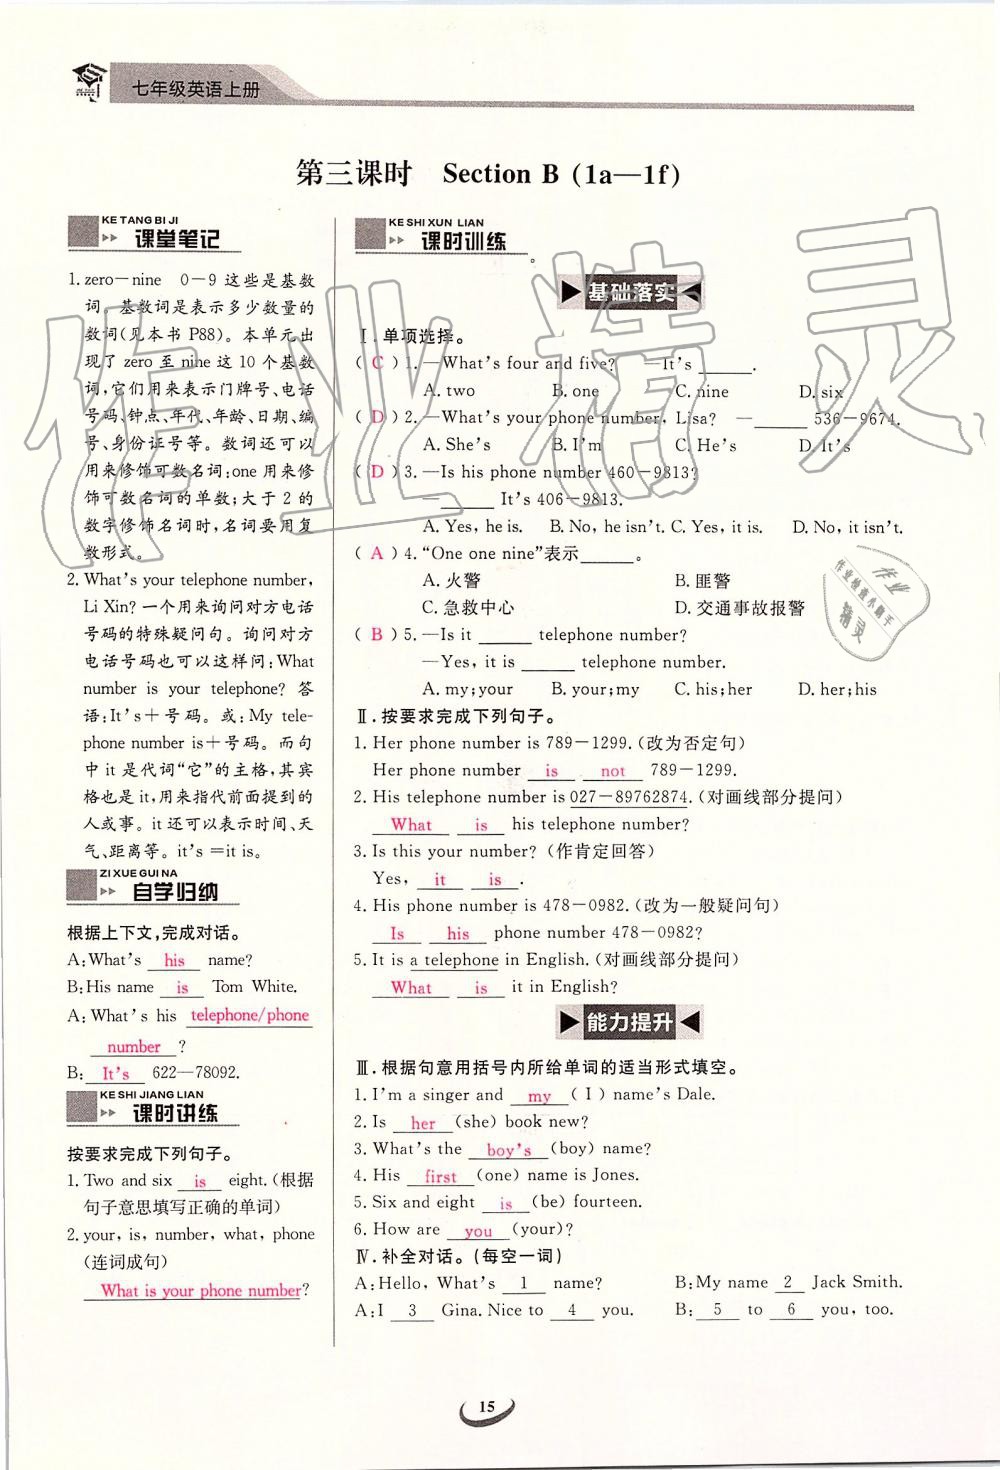 七年级英语上册
第三课时 Section B (1a—1f)
KE TANG BI JI
课堂笔记
1. zero—nine 0—9 这些是基数
词。基数词是表示多少数量的
数词(见本书 P88)。本单元出
现了 zero 至 nine 这 10 个基数
词,它们用来表示门牌号、电话
号码、钟点、年代、年龄、日期、编
号、身份证号等。数词还可以
用来修饰可数名词:one 用来修
饰可数名词的单数;大于 2 的
数字修饰名词时,名词要用复
数形式。
2. What's your telephone number,
Li Xin? 一个用来询问对方电话
号码的特殊疑问句。询问对方
电话号码也可以这样问:What
number is your telephone? 答
语:It's+号码。或:My tele-
phone number is+号码。而句
中 it 是代词“它”的主格,其宾
格也是 it,用来指代前面提到的
人或事。it 还可以表示时间、天
气、距离等。it's =it is。
ZI XUE GUI NA
自学归纳
根据上下文,完成对话。
A:What's his name?
B:His name is Tom White.
A:What's his telephone/phone
number ?
B: It's 622—78092.
KE SHI JIANG LIAN
课时讲练
按要求完成下列句子。
1. Two and six is eight.(根据
句子意思填写正确的单词)
2. your, is, number, what, phone
(连词成句)
What is your phone number?
KE SHI XUN LIAN
课时训练
基础落实
Ⅰ.单项选择。
( C )1.—What's four and five? —It's ______.
A. two B. one C. nine D. six
( D )2.—What's your phone number, Lisa? — ______ 536-9674.
A. She's B. I'm C. He's D. It's
( D )3.—Is his phone number 460-9813?
— ______ It's 406-9813.
A. Yes, he is. B. No, he isn't. C. Yes, it is. D. No, it isn't.
( A )4.“One one nine”表示______。
A. 火警 B. 匪警
C. 急救中心 D. 交通事故报警
( B )5.—Is it ______ telephone number?
—Yes, it is ______ telephone number.
A. my;your B. your;my C. his;her D. her;his
Ⅱ.按要求完成下列句子。
1. Her phone number is 789-1299.(改为否定句)
Her phone number is not 789-1299.
2. His telephone number is 027-89762874.(对画线部分提问)
What is his telephone number?
3. Is this your number?(作肯定回答)
Yes, it is .
4. His phone number is 478-0982.(改为一般疑问句)
Is his phone number 478-0982?
5. It is a telephone in English.(对画线部分提问)
What is it in English?
能力提升
Ⅲ.根据句意用括号内所给单词的适当形式填空。
1. I'm a singer and my ( I ) name's Dale.
2. Is her (she) book new?
3. What's the boy's (boy) name?
4. His first (one) name is Jones.
5. Six and eight is (be) fourteen.
6. How are you (your)?
Ⅳ.补全对话。(每空一词)
A:Hello, What's 1 name? B:My name 2 Jack Smith.
A:I 3 Gina. Nice to 4 you. B: 5 to 6 you, too.
15
作业精灵
作业
作业检查小助手
精灵